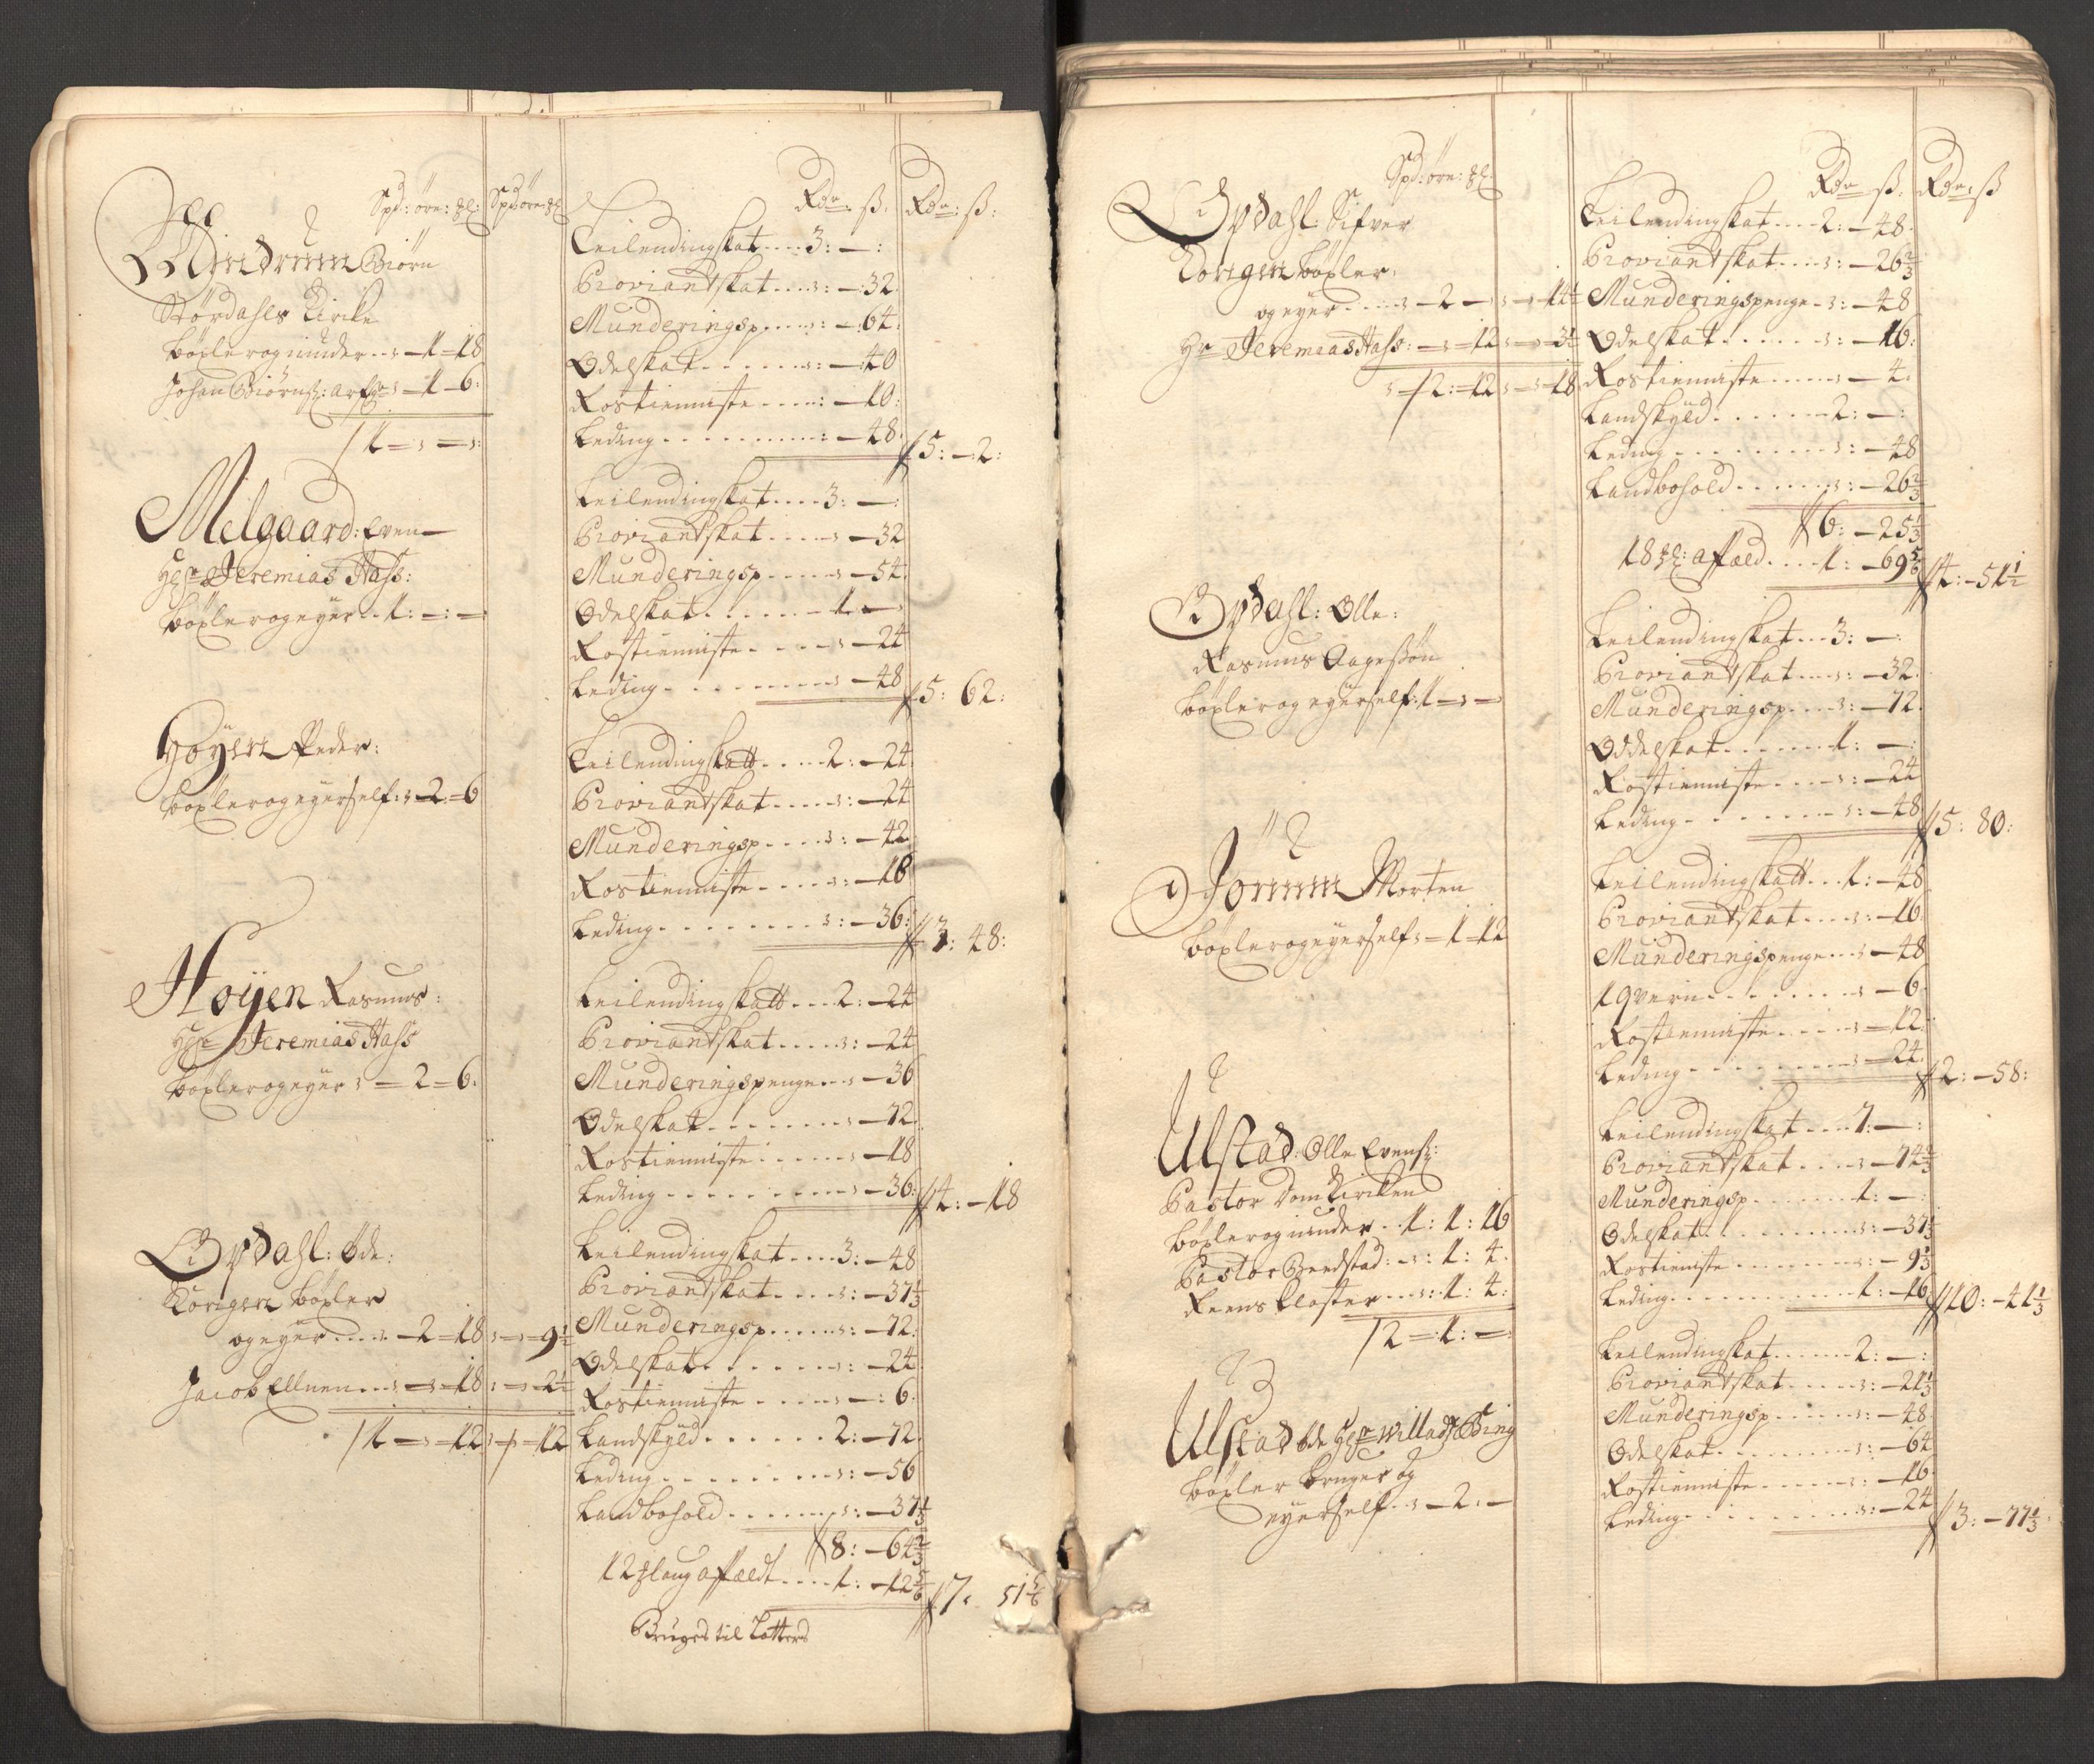 Spd: öre: gl: Spd: öre gl
Rdr: ß: Rdr: ß:
Windrum Biörn
Stördahls Kircke
böxler og under - 1 = 18
Johan Biörns: arf: - 1 - 6:
1 = =:
Leilendingskat .... 3: —:
Proviantskat ....: — 32.
Munderingsp ....: — 64.
Odelskat ......: — 40
Rostienniste ....: — 10:
Leding .........: — 48.
5: — 2:
Melgaard: Even —
Hr Jeremias Hass:
böxler og eyer .. 1: =: =
Leilendingskat .... 3: —:
Proviantskat ..... — 32
Munderingsp ..... — 54.
Odelskat ...... 1 —
Rostienniste ..... — 24
Leding ......... — 48
5: 62:
Höyen Peder:
böxler og eyer self: - 2 = 6
Leilendingskatt .... 2: — 24.
Proviantskat .....: — 24.
Munderingsp ....: — 42
Rostienniste ....: — 18
Leding .........: — 36:
3: 48:
Höyen Rasmus:
Hr Jeremias Hass
böxler og eyer = 2 = 6.
Leilendingskatt ... 2: — 24
Proviantskat .....: — 24
Munderingspenge ... — 36
Odelskat ........ — 72.
Rostienniste ...... — 18
Leding .......... — 36:
4: — 18
Opdahl: Öde:
Kongen böxler
og eyer .... - 2 = 18 = 9½
Jacob Ellnen ... = 18 = 2½
1 = 12 = 12
Leilendingskat .... 3: — 48
Proviantskat ....: — 37⅓
Munderingsp ......: — 72.
Odelskat .......: — 24
Rostienniste .....: — 6.
Landskyld ...... 2: — 72.
Leding .........: — 56
Landbohold ......: — 37⅓
8: — 64⅔
12 gl aug affældt .... 1: — 12⅚
7. 51⅚
Bruges til Lotters
Spd: öre: gl.
Rdr ß. Rdr: ß
Opdahl: Sifver
Kongen böxler
og eyer .... — 2 — 14½
Hr Jeremias Hass: — = 12 — 3½
2: = 12 = 18
Leilendingskat ... 2: — 48.
Proviantskat ....: — 26⅔
Munderingspenge ..: — 48
Odelskat ......: — 16:
Rostienniste ..... — 4.
Landskyld ...... 2: —:
Leding ........: — 48
Landbohold ......: — 26⅔
6: — 25⅓
18 gl: affæld .... 1: — 69⅚
4: — 51½
Opdahl: Olle:
Rasmus Aagessön
böxler og eyer self: 1 — —
Leilendingskat ... 3: —:
Proviantskat ....: — 32.
Munderingsp ....: — 72.
Oddelskat ...... 1: —:
Rostienniste ....: — 24
Leding .......: — 48
5: 80:
Jorum Morten
böxler og eyer self = 1 = 12
Leilendingskatt ... 1: — 48
Proviantskat ....: — 16.
Munderingspenge ... — 48
1 qvern ....... — 6.
Rostienniste .... — 12.
Leding ........ — 24.
2: — 58:
Ulstad: Olle Evens:
Pastor Dom Kircken
böxler og under .. 1: 1: 16
Pastor Bredstad: -: 1: 4.
Reens Kloster ....: 1: 4:
2 = 1: =
Leilendingskat .... 7: —:
Proviantskat .... — 74⅔
Munderingsp ...... 1: —:
Odelskat ........: — 37⅓
Rostieniste .......: — 9⅓
Leding ......... 1: — 16
10: — 41⅓
Ulstad öde Hr Willads Bing
böxler bruger og
eyer self .. — 2: —
Leilendingskat ..... 2: —:
Proviantskat .....: — 21⅓
Munderingsp .....: — 48.
Odelskat .......: — 64
Rostienniste .....: — 16.
Leding .........: — 24
3: — 77⅓